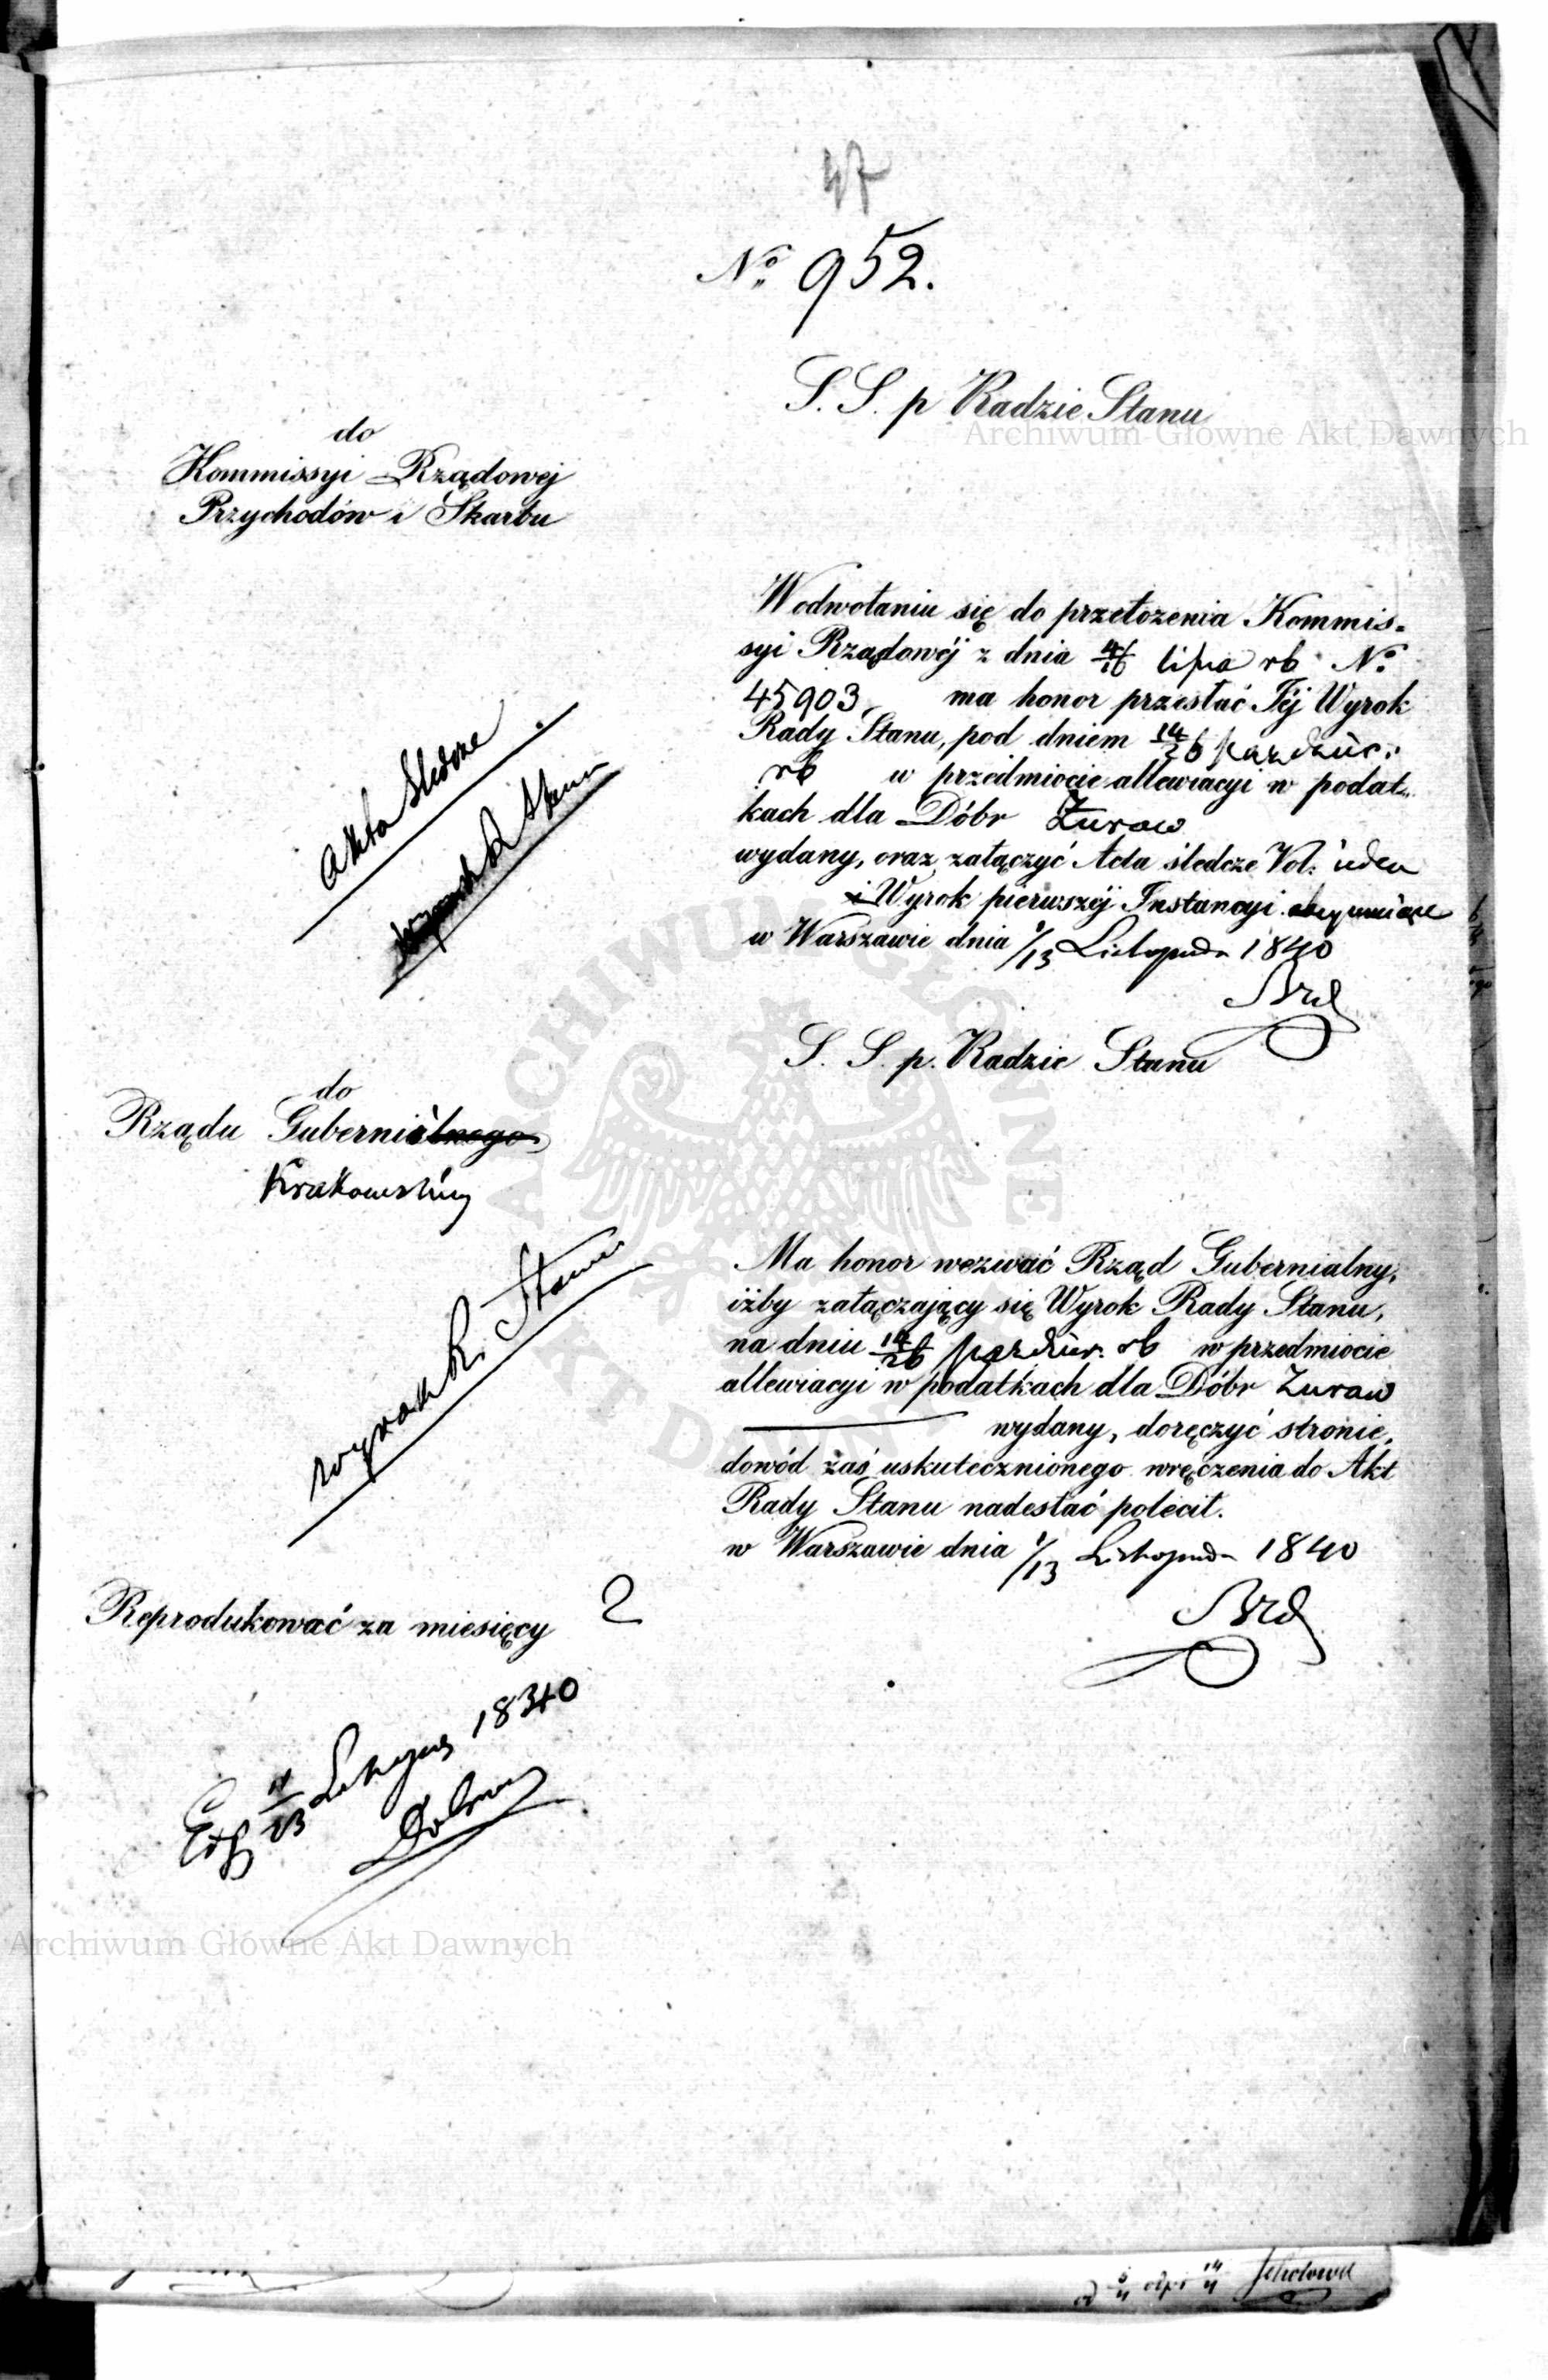 47
No 952.
S. S. p Radzie Stanu
Archiwum Główne Akt Dawnych
do
Kommissyi Rządowej
Przychodów i Skarbu
W odwołaniu się do przełożenia Kommis-
syi Rządowéj z dnia 4/16 lipca rb No
45903 ma honor przesłać Téj Wyrok
Rady Stanu, pod dniem 14/26 paździer.
rb w przedmiocie allewiacyi w podat-
kach dla Dóbr Żuraw
wydany, oraz załączyć Acta śledcze Vol: jeden
i Wyrok pierwszéj Instancyi obejmujące
w Warszawie dnia 1/13 Listopada 1840
Akta śledcze
Wyrok R Stanu
S. S. p. Radzie Stanu
do
Rządu Gubernialnego
Krakowskiego
Ma honor wezwać Rząd Gubernialny,
iżby załączający się Wyrok Rady Stanu,
na dniu 14/26 paździer. rb w przedmiocie
allewiacyi w podatkach dla Dóbr Żuraw
wydany, doręczyć stronie,
dowód zaś uskutecznionego wręczenia do Akt
Rady Stanu nadesłać polecił.
w Warszawie dnia 1/13 Listopada 1840
wyrok R. Stanu
Reprodukować za miesięcy 2
1840
ARCHIWUM GŁÓWNE
AKT DAWNYCH
Archiwum Główne Akt Dawnych